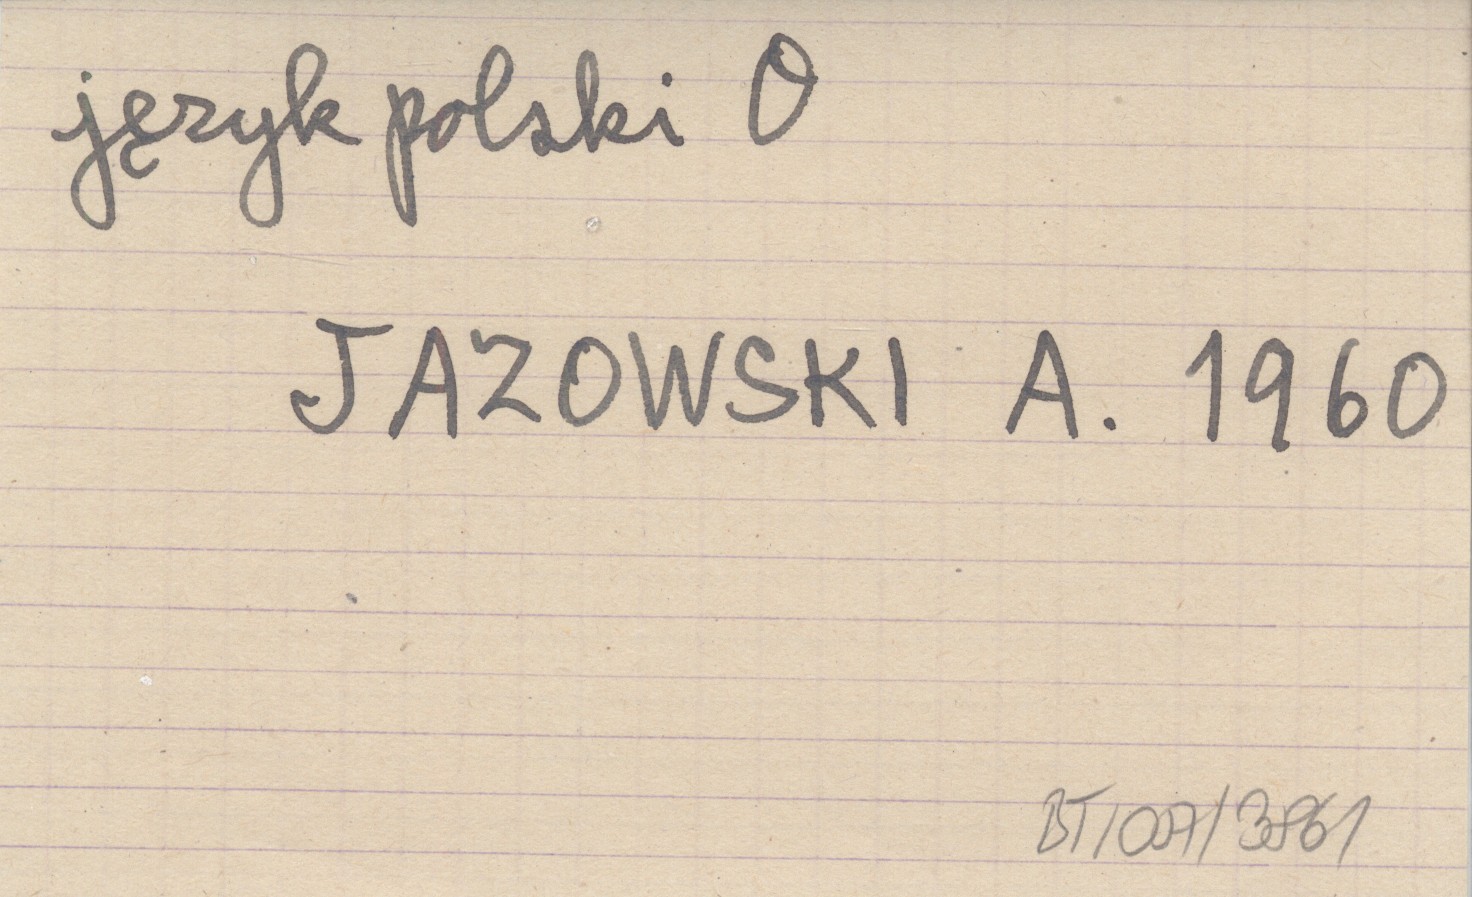 język polski O
JAZOWSKI A. 1960
BT/007/3861